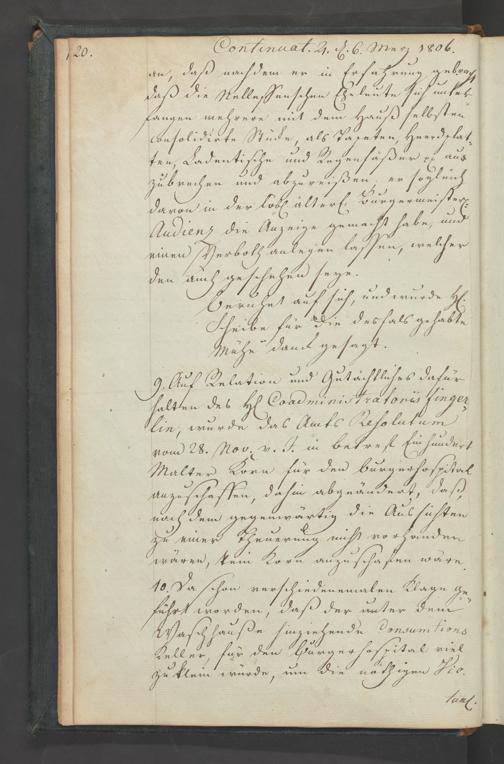 120. Continuat. 4. d. 6. Merz 1806.
an, daß nachdem er in Erfahrung gebracht
daß die Nellessenschen Eheleute sich unter-
fangen mehrere mit dem Hauß selbsten
consolidirte Stücke, als Tapeten, Heerdplat-
ten, Ladentische und Regenfäßer pp aus-
zubrechen und abzureißen, er sogleich
davon in der Löbl. älter. Burgermeister
Audienz die Anzeige gemacht habe, und
einen Verboth anlegen lassen, welcher
den auch geschehen seye.
Beruhet auf sich, und wurde H.
Scheibe für die deshals gehabte
Mühe dank gesagt.
9. Auf Relation und Gutachtliches dafür-
halten des H. Coadministratoris Finger-
lin, wurde das Amts Resolutum
vom 28. Nov. v. J. in betref Einhundert
Malter Korn für den burgerhospital
anzuschaffen, dahin abgeändert, daß,
nach dem gegenwärtig die Aussichten
zu einer Theuerung nicht vorhanden
wären, kein Korn anzuschafen wäre.
10. Da schon verschiedenemalen Klage ge-
führt worden, daß der unter dem
Waschhauße hinziehende Consumtions
Keller, für den Burgerhospital viel
zu klein würde, um die nöthigen Vic-
tual.